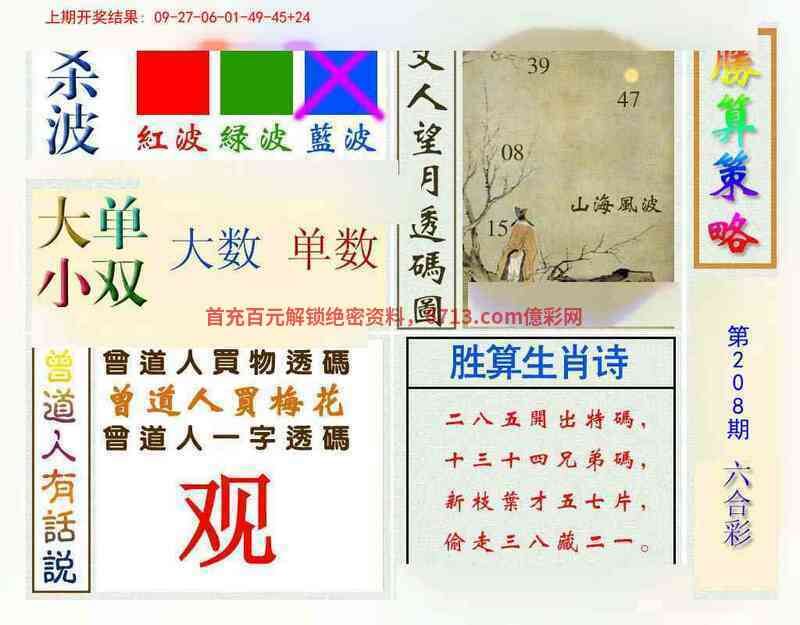 上期开奖结果：09-27-06-01-49-45+24
杀波
紅波 緑波 藍波
文人望月透碼圖
39
47
08
15
山海風波
勝算策略
大单
小双
大数 单数
首充百元解锁绝密资料，6713.com億彩网
曾道人有話説
曾道人買物透碼
曾道人買梅花
曾道人一字透碼
观
胜算生肖诗
二八五開出特碼，
十三十四兄弟碼，
新枝葉才五七片，
偷走三八藏二一。
第208期
六合彩